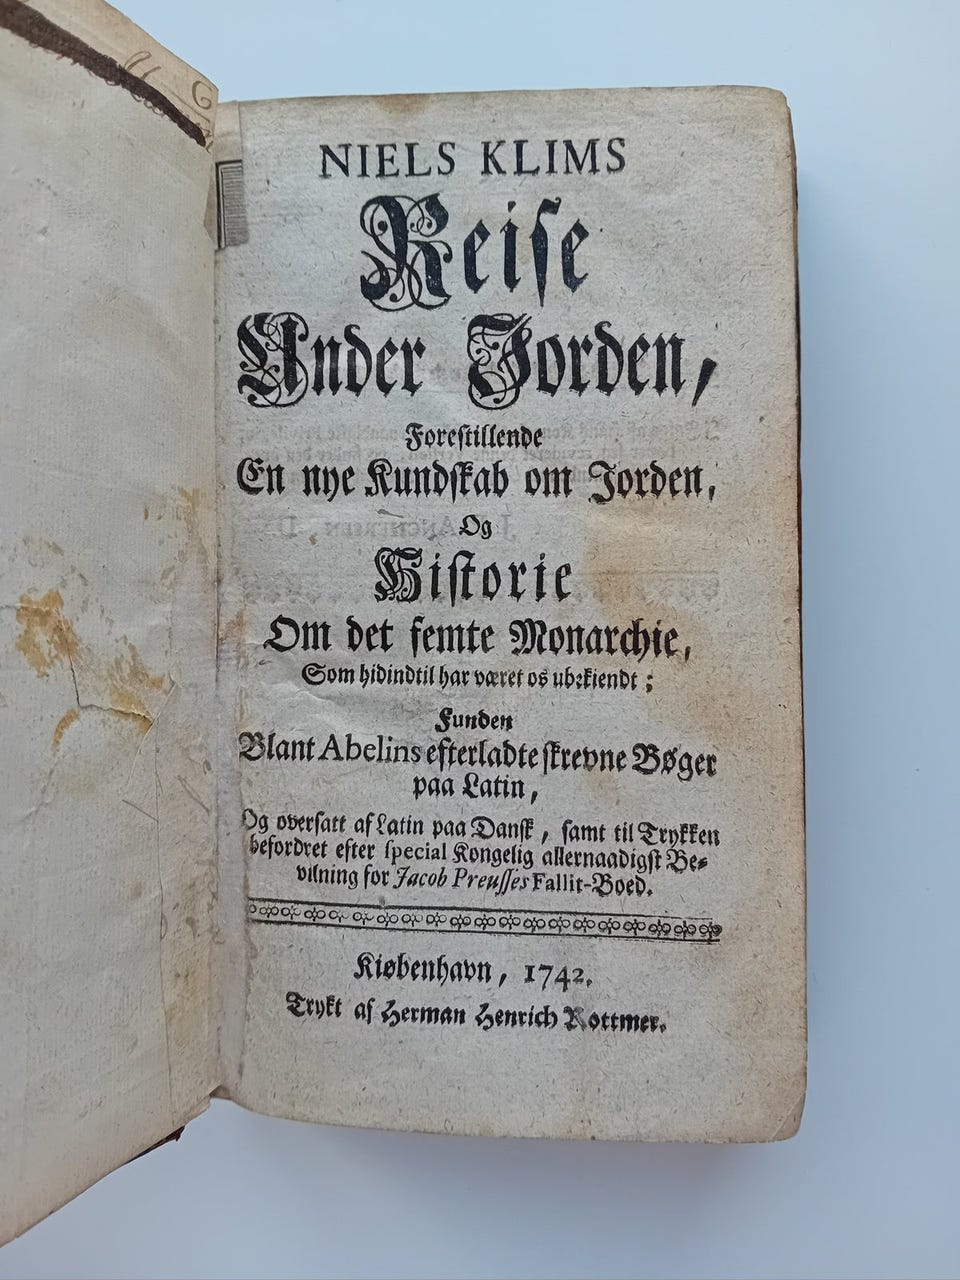 NIELS KLIMS
Reise
Under Jorden,
Forestillende
En nye Kundskab om Jorden,
Og
Historie
Om det femte Monarchie,
Som hidindtil har været os ubekiendt;
Funden
Blant Abelins efterladte skrevne Bøger
paa Latin,
Og oversatt af Latin paa Dansk, samt til Trykken
befordret efter special Kongelig allernaadigst Be-
vilning for Jacob Preusses Fallit-Boed.
Kiøbenhavn, 1742.
Trykt af Herman Henrich Rottmer.